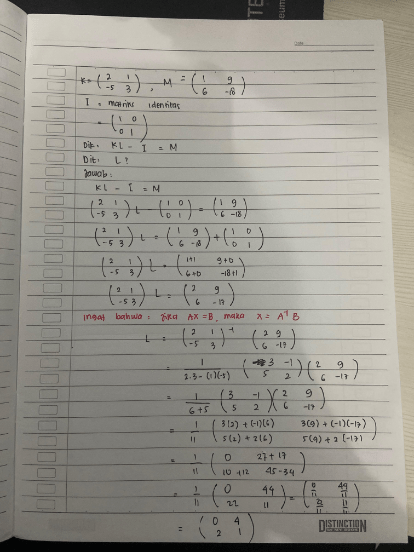 K = (2 1 / -5 3), M = (1 9 / 6 -18)
I = matriks identitas
= (1 0 / 0 1)
Dik: KL - I = M
Dit: L?
Jawab:
KL - I = M
(2 1 / -5 3) L - (1 0 / 0 1) = (1 9 / 6 -18)
(2 1 / -5 3) L = (1 9 / 6 -18) + (1 0 / 0 1)
(2 1 / -5 3) L = (1+1 9+0 / 6+0 -18+1)
(2 1 / -5 3) L = (2 9 / 6 -17)
Ingat bahwa: jika AX = B, maka X = A⁻¹ B
L = (2 1 / -5 3)⁻¹ (2 9 / 6 -17)
= 1 / 2.3-(1)(-5) (3 -1 / 5 2) (2 9 / 6 -17)
= 1 / 6+5 (3 -1 / 5 2) (2 9 / 6 -17)
= 1/11 (3(2) + (-1)(6) 3(9) + (-1)(-17) / 5(2) + 2(6) 5(9) + 2(-17))
= 1/11 (0 27+17 / 10+12 45-34)
= 1/11 (0 44 / 22 11) = (0/11 44/11 / 22/11 11/11)
= (0 4 / 2 1)
DISTINCTION